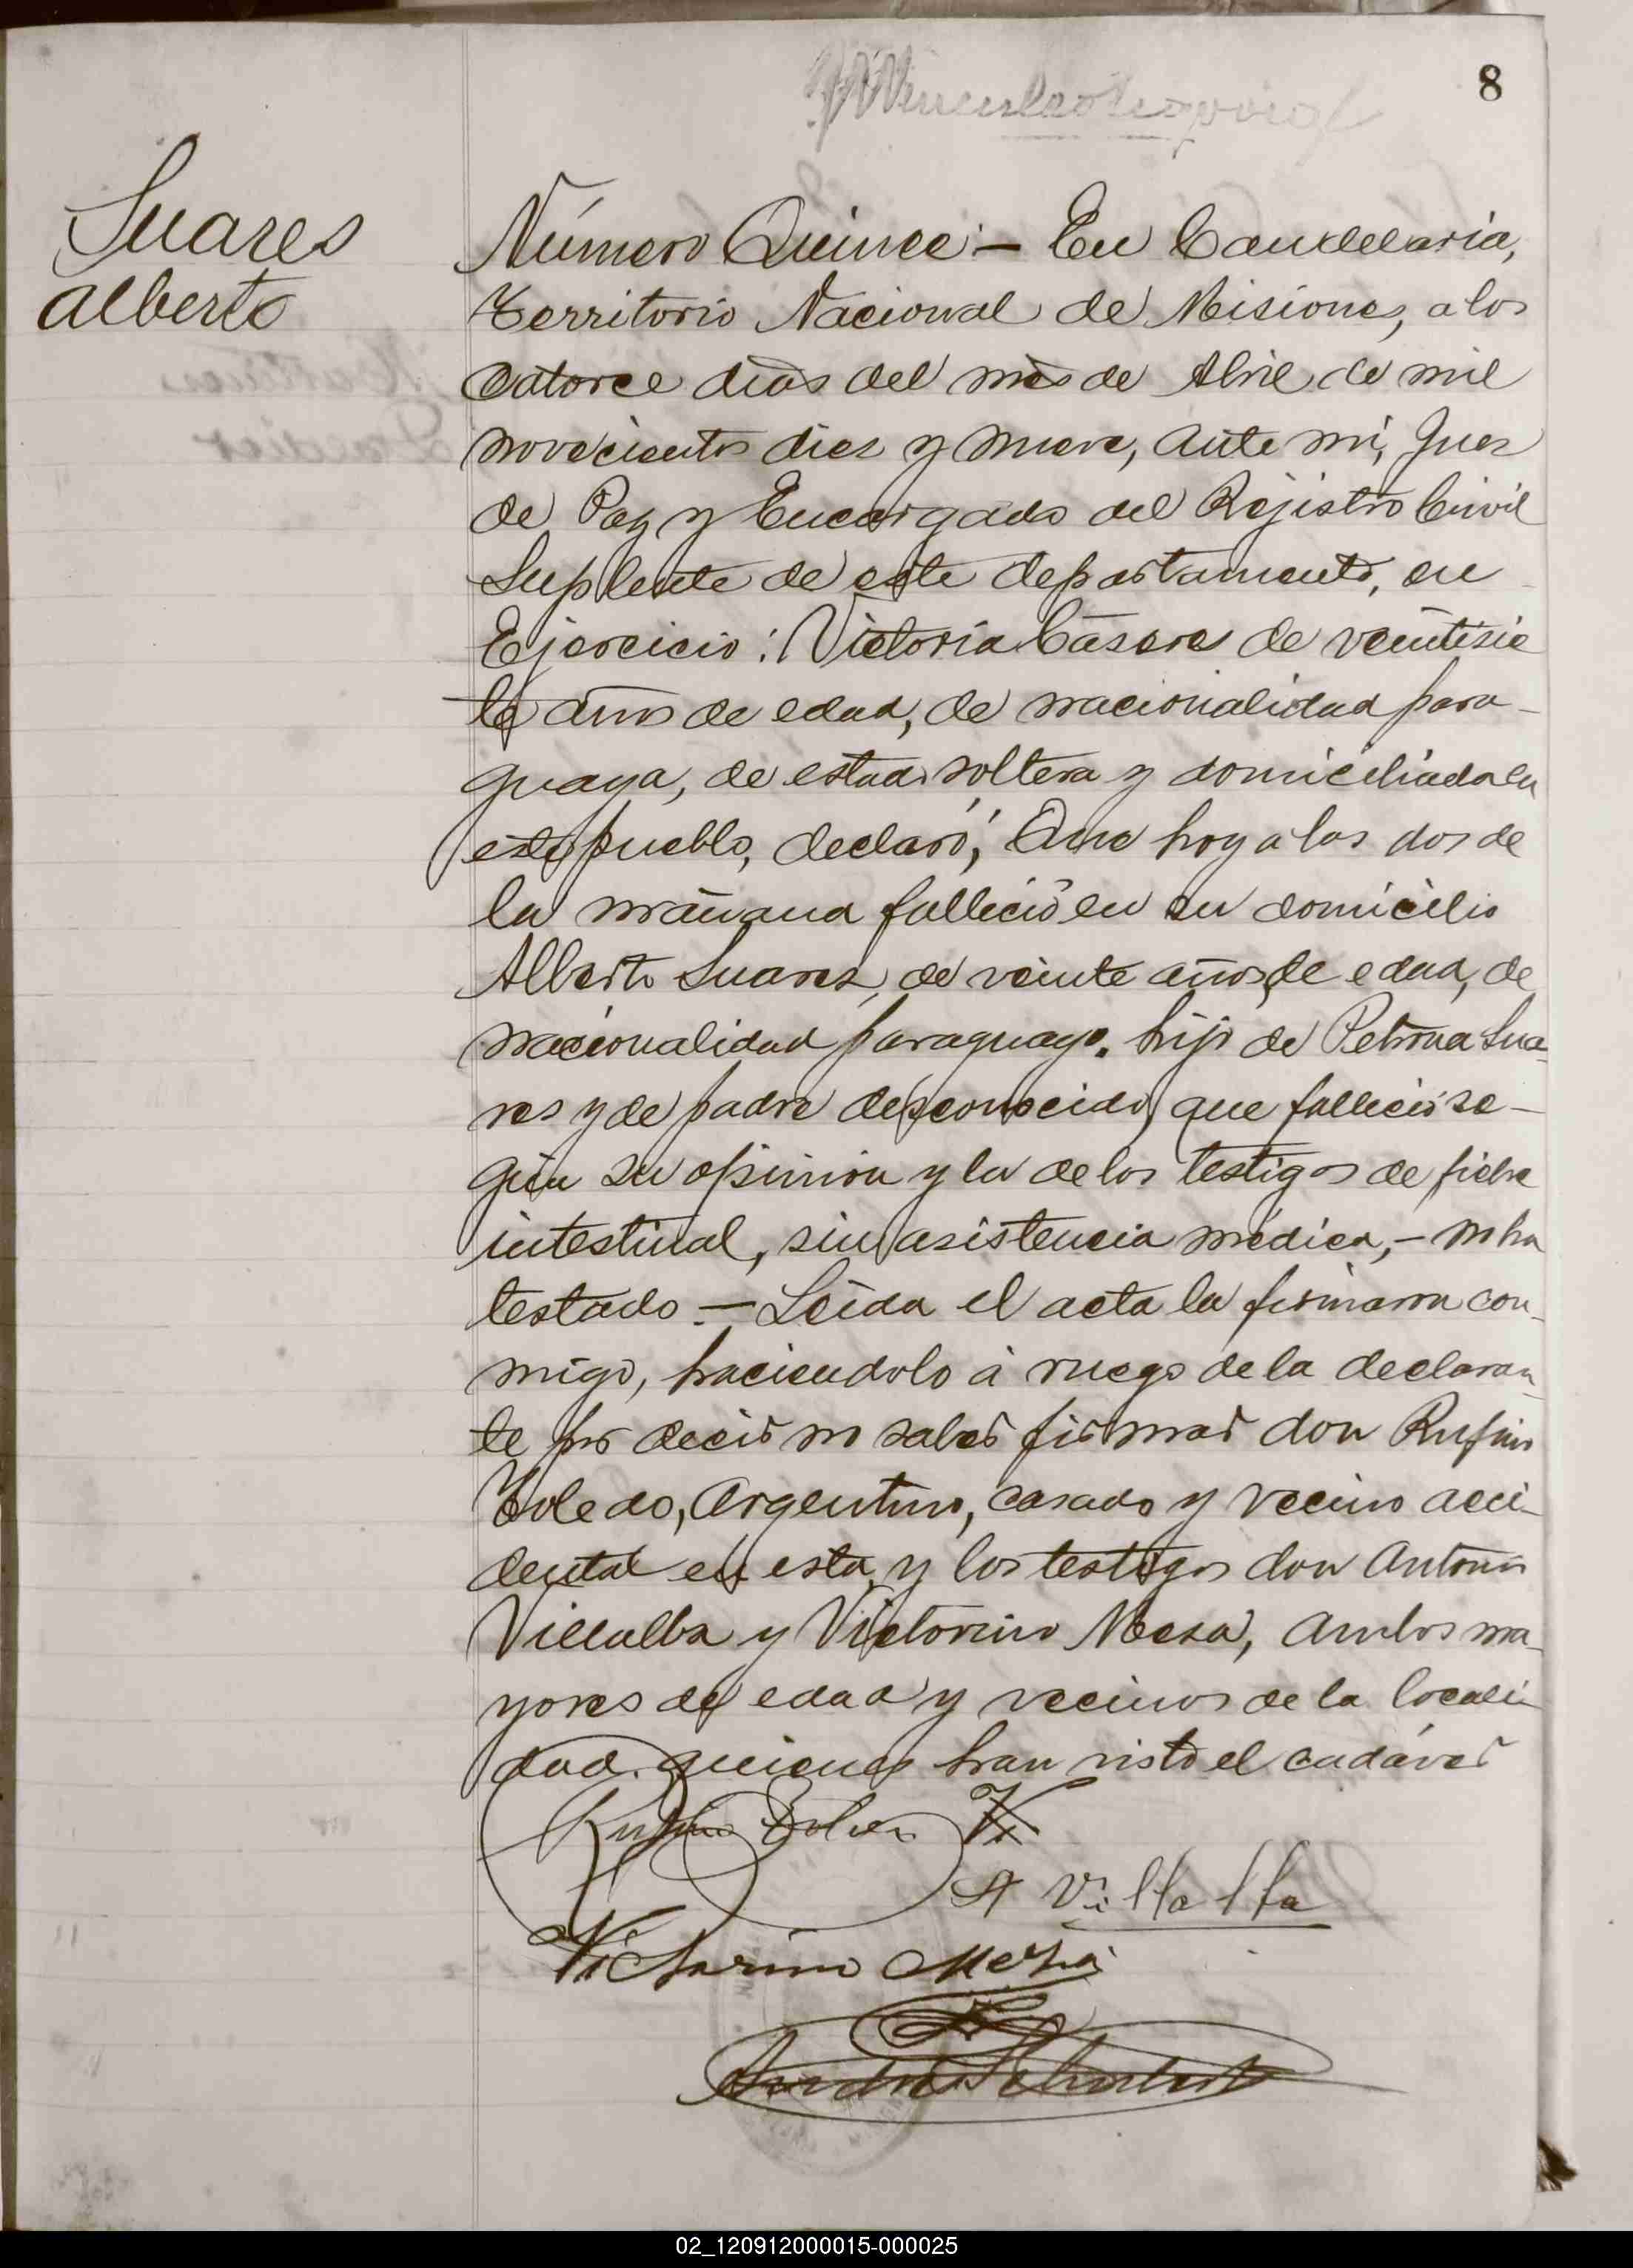 8
Suares
Alberto
Número Quince: — En Candelaria,
Territorio Nacional de Misiones, a los
Catorce dias del mes de Abril de mil
novecientos diez y nueve, ante mi, Juez
de Paz y Encargado del Rejistro Civil
Suplente de este departamento, en
Ejercicio: Victoria Cáseres de veintisie
te años de edad, de nacionalidad para-
guaya, de estado soltera y domiciliada en
este pueblo, declaró; Que hoy a las dos de
la mañana fallició en su domicilio
Alberto Suares, de veinte años de edad, de
nacionalidad paraguayo. hijo de Petrona Sua-
res y de padre desconocido, que falleció se-
gún su opinión y la de los testigos de fiebre
intestinal, sin asistencia médica, — no ha
testado — Leida el acta la firmaron con-
migo, haciendolo á ruego de la declaran-
te por decir no saber firmar don Rufino
Toledo, Argentino, casado y vecino acci-
dental en esta, y los testigos don Antonio
Villalba y Victorino Mesa, ambos ma-
yores de edad y vecinos de la locali-
dad. quienes han visto el cadáver
Rufino Toledo
A Villalba
Victorino Mesa